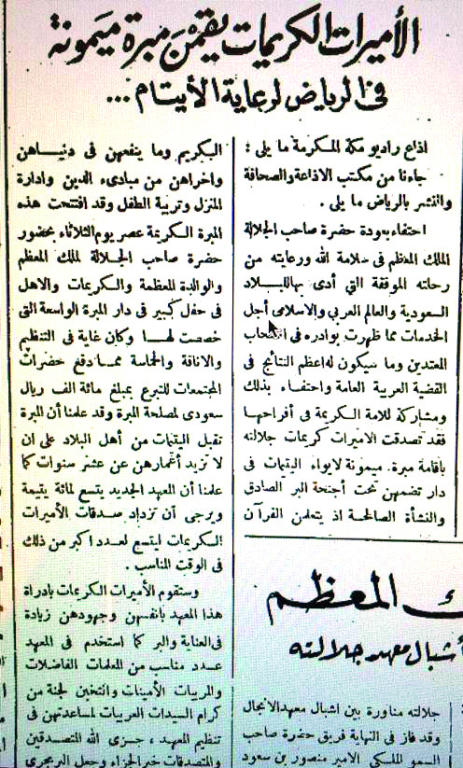 الأميرات الكريمات يقمن مبرة ميمونة
في الرياض لرعاية الأيتام ...
اذاع راديو مكة المكرمة ما يلى :
جاءنا من مكتب الاذاعة والصحافة
والنشر بالرياض ما يلى .
احتفاء بعودة حضرة صاحب الجلالة
الملك المعظم فى سلامة الله ورعايته من
رحلته الموفقة التي أدى بها للبلاد
السعودية والعالم العربى والاسلامى أجل
الخدمات مما ظهرت بوادره فى انسحاب
المعتدين وما سيكون له اعظم النتائج فى
القضية العربية العامة واحتفاء بذلك
ومشاركة للامة الكريمة فى أفراحها
فقد تصدقت الاميرات كريمات جلالته
باقامة مبرة ميمونة لايواء اليتيمات فى
دار تضمهن تحت أجنحة البر الصادق
والنشأة الصالحة اذ يتعلمن القرآن
الكريم وما ينفعهن فى دنياهن
واخراهن من مبادىء الدين وادارة
المنزل وتربية الطفل وقد افتتحت هذه
المبرة الكريمة عصر يوم الثلاثاء بحضور
حضرة صاحب الجلالة الملك المعظم
والوالدة المعظمة والكريمات والاهل
فى حفل كبير فى دار المبرة الواسعة التى
خصصت لها وكان غاية فى التنظيم
والاناقة والحماسة مما دفع حضرات
المجتمعات للتبرع بمبلغ مائة الف ريال
سعودى لمصلحة المبرة وقد علمنا أن المبرة
تقبل اليتيمات من أهل البلاد على ان
لا تزيد أعمارهن عن عشر سنوات كما
علمنا أن المعهد الجديد يتسع لمائة يتيمة
ويرجى أن تزداد صدقات الأميرات
الكريمات ليتسع لعدد اكبر من ذلك
فى الوقت المناسب .
وستقوم الأميرات الكريمات بادراة
هذا المعهد بانفسهن وجهودهن زيادة
فى العناية والبر كما استخدم فى المعهد
عدد مناسب من المعلمات الفاضلات
والمربيات الأمينات وانتخبن لجنة من
كرام السيدات العربيات لمساعدتهن فى
تنظيم المعهد ، جزى الله المتصدقين
والمتصدقات خير الجزاء وجعل
ك المعظم
أشبال معهد جلالته
جلالته مناورة بين اشبال معهد الانجال
وقد فاز فى النهاية فريق حضرة صاحب
السمو الملكى الامير منصور بن سعود